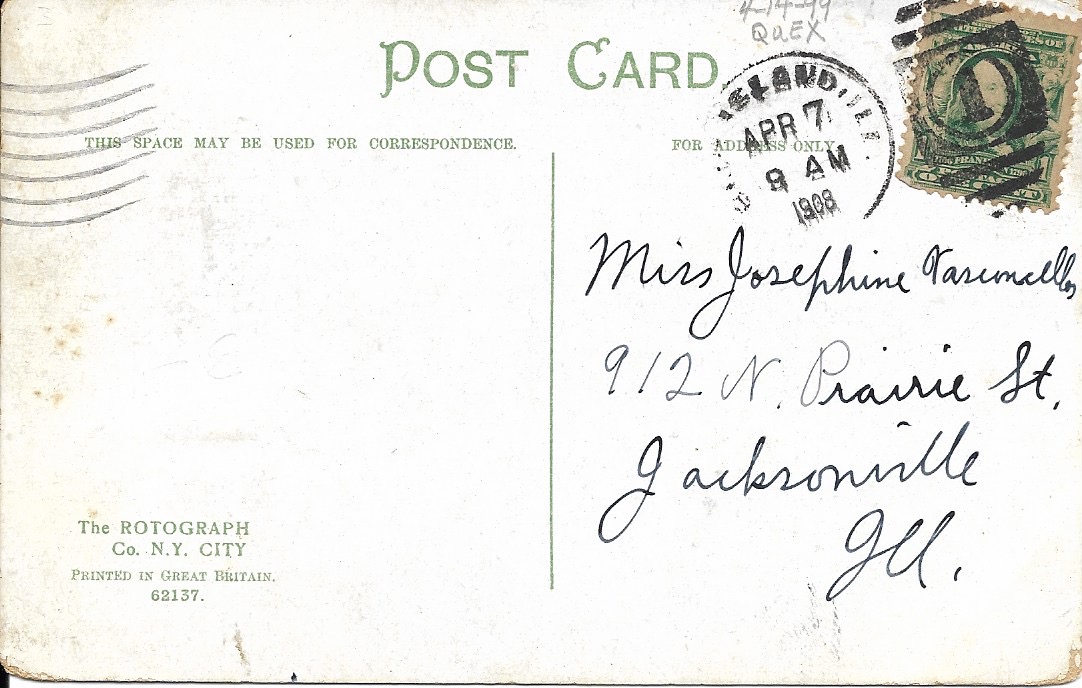 4-14-99
QaEX
POST CARD
THIS SPACE MAY BE USED FOR CORRESPONDENCE.
FOR ADDRESS ONLY.
ISLAND, ILL.
APR 7
8 AM
1908
1
Miss Josephine Vasconcellos
912 N. Prairie St.
Jacksonville
Ill.
The ROTOGRAPH
Co. N.Y. CITY
PRINTED IN GREAT BRITAIN.
62137.